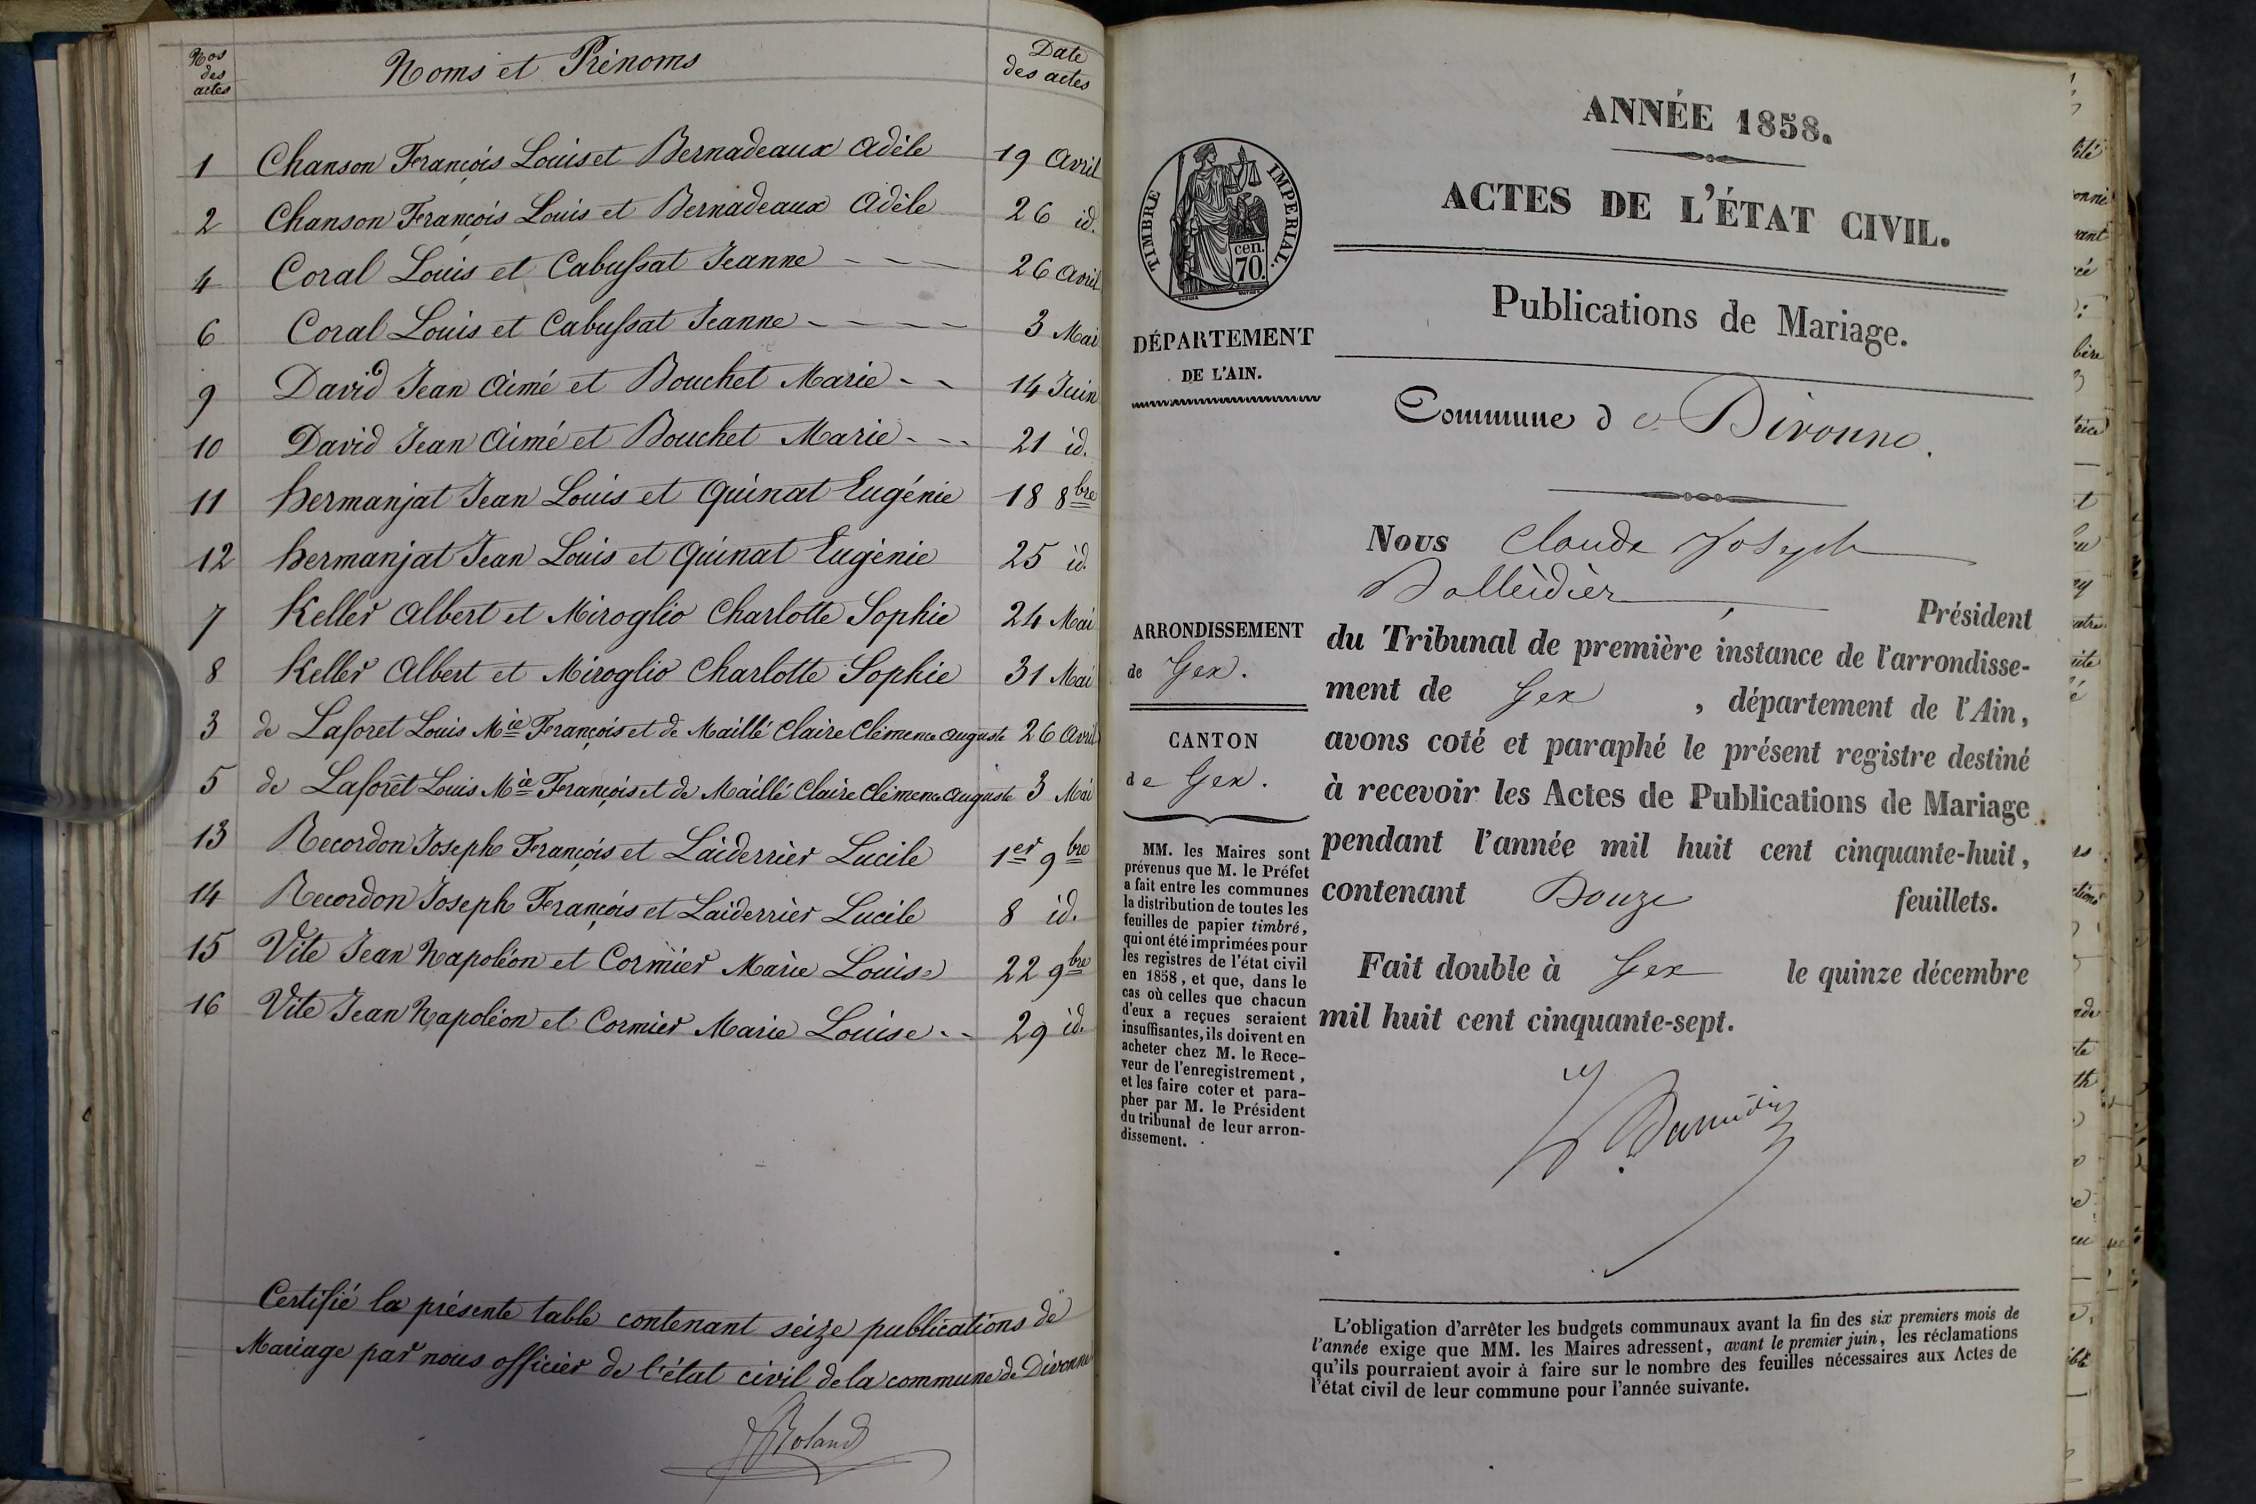 Nos des actes Noms et Prénoms Date des actes
1 Chanson François Louis et Bernadeaux Adèle 19 Avril
2 Chanson François Louis et Bernadeaux Adèle 26 id.
4 Coral Louis et Cabussat Jeanne - - - 26 Avril
6 Coral Louis et Cabussat Jeanne - - - - 3 Mai
9 David Jean Aimé et Bouchet Marie - - 14 Juin
10 David Jean Aimé et Bouchet Marie - - - 21 id.
11 hermanjat Jean Louis et Quinat Eugénie 18 8bre
12 hermanjat Jean Louis et Quinat Eugénie 25 id.
7 Keller Albert et Miroglio Charlotte Sophie 24 Mai
8 Keller Albert et Miroglio Charlotte Sophie 31 Mai
3 de Laforet Louis Mie François et de Maillé Claire Clémence Auguste 26 Avril
5 de Laforêt Louis Mie François et de Maillé Claire Clémence Auguste 3 Mai
13 Recordon Joseph François et Laiderrier Lucile 1er 9bre
14 Recordon Joseph François et Laiderrier Lucile 8 id.
15 Vite Jean Napoléon et Cormier Marie Louise 22 9bre
16 Vite Jean Napoléon et Cormier Marie Louise - - 29 id.
Certifié la présente table contenant seize publications de
Mariage par nous officier de l'état civil de la commune de Divonne
Roland
ANNÉE 1858.
ACTES DE L'ÉTAT CIVIL.
Publications de Mariage.
Commune de Divonne.
TIMBRE IMPERIAL.
cen.
70.
DÉPARTEMENT
DE L'AIN.
ARRONDISSEMENT
de Gex.
CANTON
de Gex.
MM. les Maires sont
prévenus que M. le Préfet
a fait entre les communes
la distribution de toutes les
feuilles de papier timbré,
qui ont été imprimées pour
les registres de l'état civil
en 1858, et que, dans le
cas où celles que chacun
d'eux a reçues seraient
insuffisantes, ils doivent en
acheter chez M. le Rece-
veur de l'enregistrement,
et les faire coter et para-
pher par M. le Président
du tribunal de leur arron-
dissement.
Nous Claude Joseph
Balleidier, Président
du Tribunal de première instance de l'arrondisse-
ment de Gex, département de l'Ain,
avons coté et paraphé le présent registre destiné
à recevoir les Actes de Publications de Mariage
pendant l'année mil huit cent cinquante-huit,
contenant Douze feuillets.
Fait double à Gex le quinze décembre
mil huit cent cinquante-sept.
L'obligation d'arrêter les budgets communaux avant la fin des six premiers mois de
l'année exige que MM. les Maires adressent, avant le premier juin, les réclamations
qu'ils pourraient avoir à faire sur le nombre des feuilles nécessaires aux Actes de
l'état civil de leur commune pour l'année suivante.